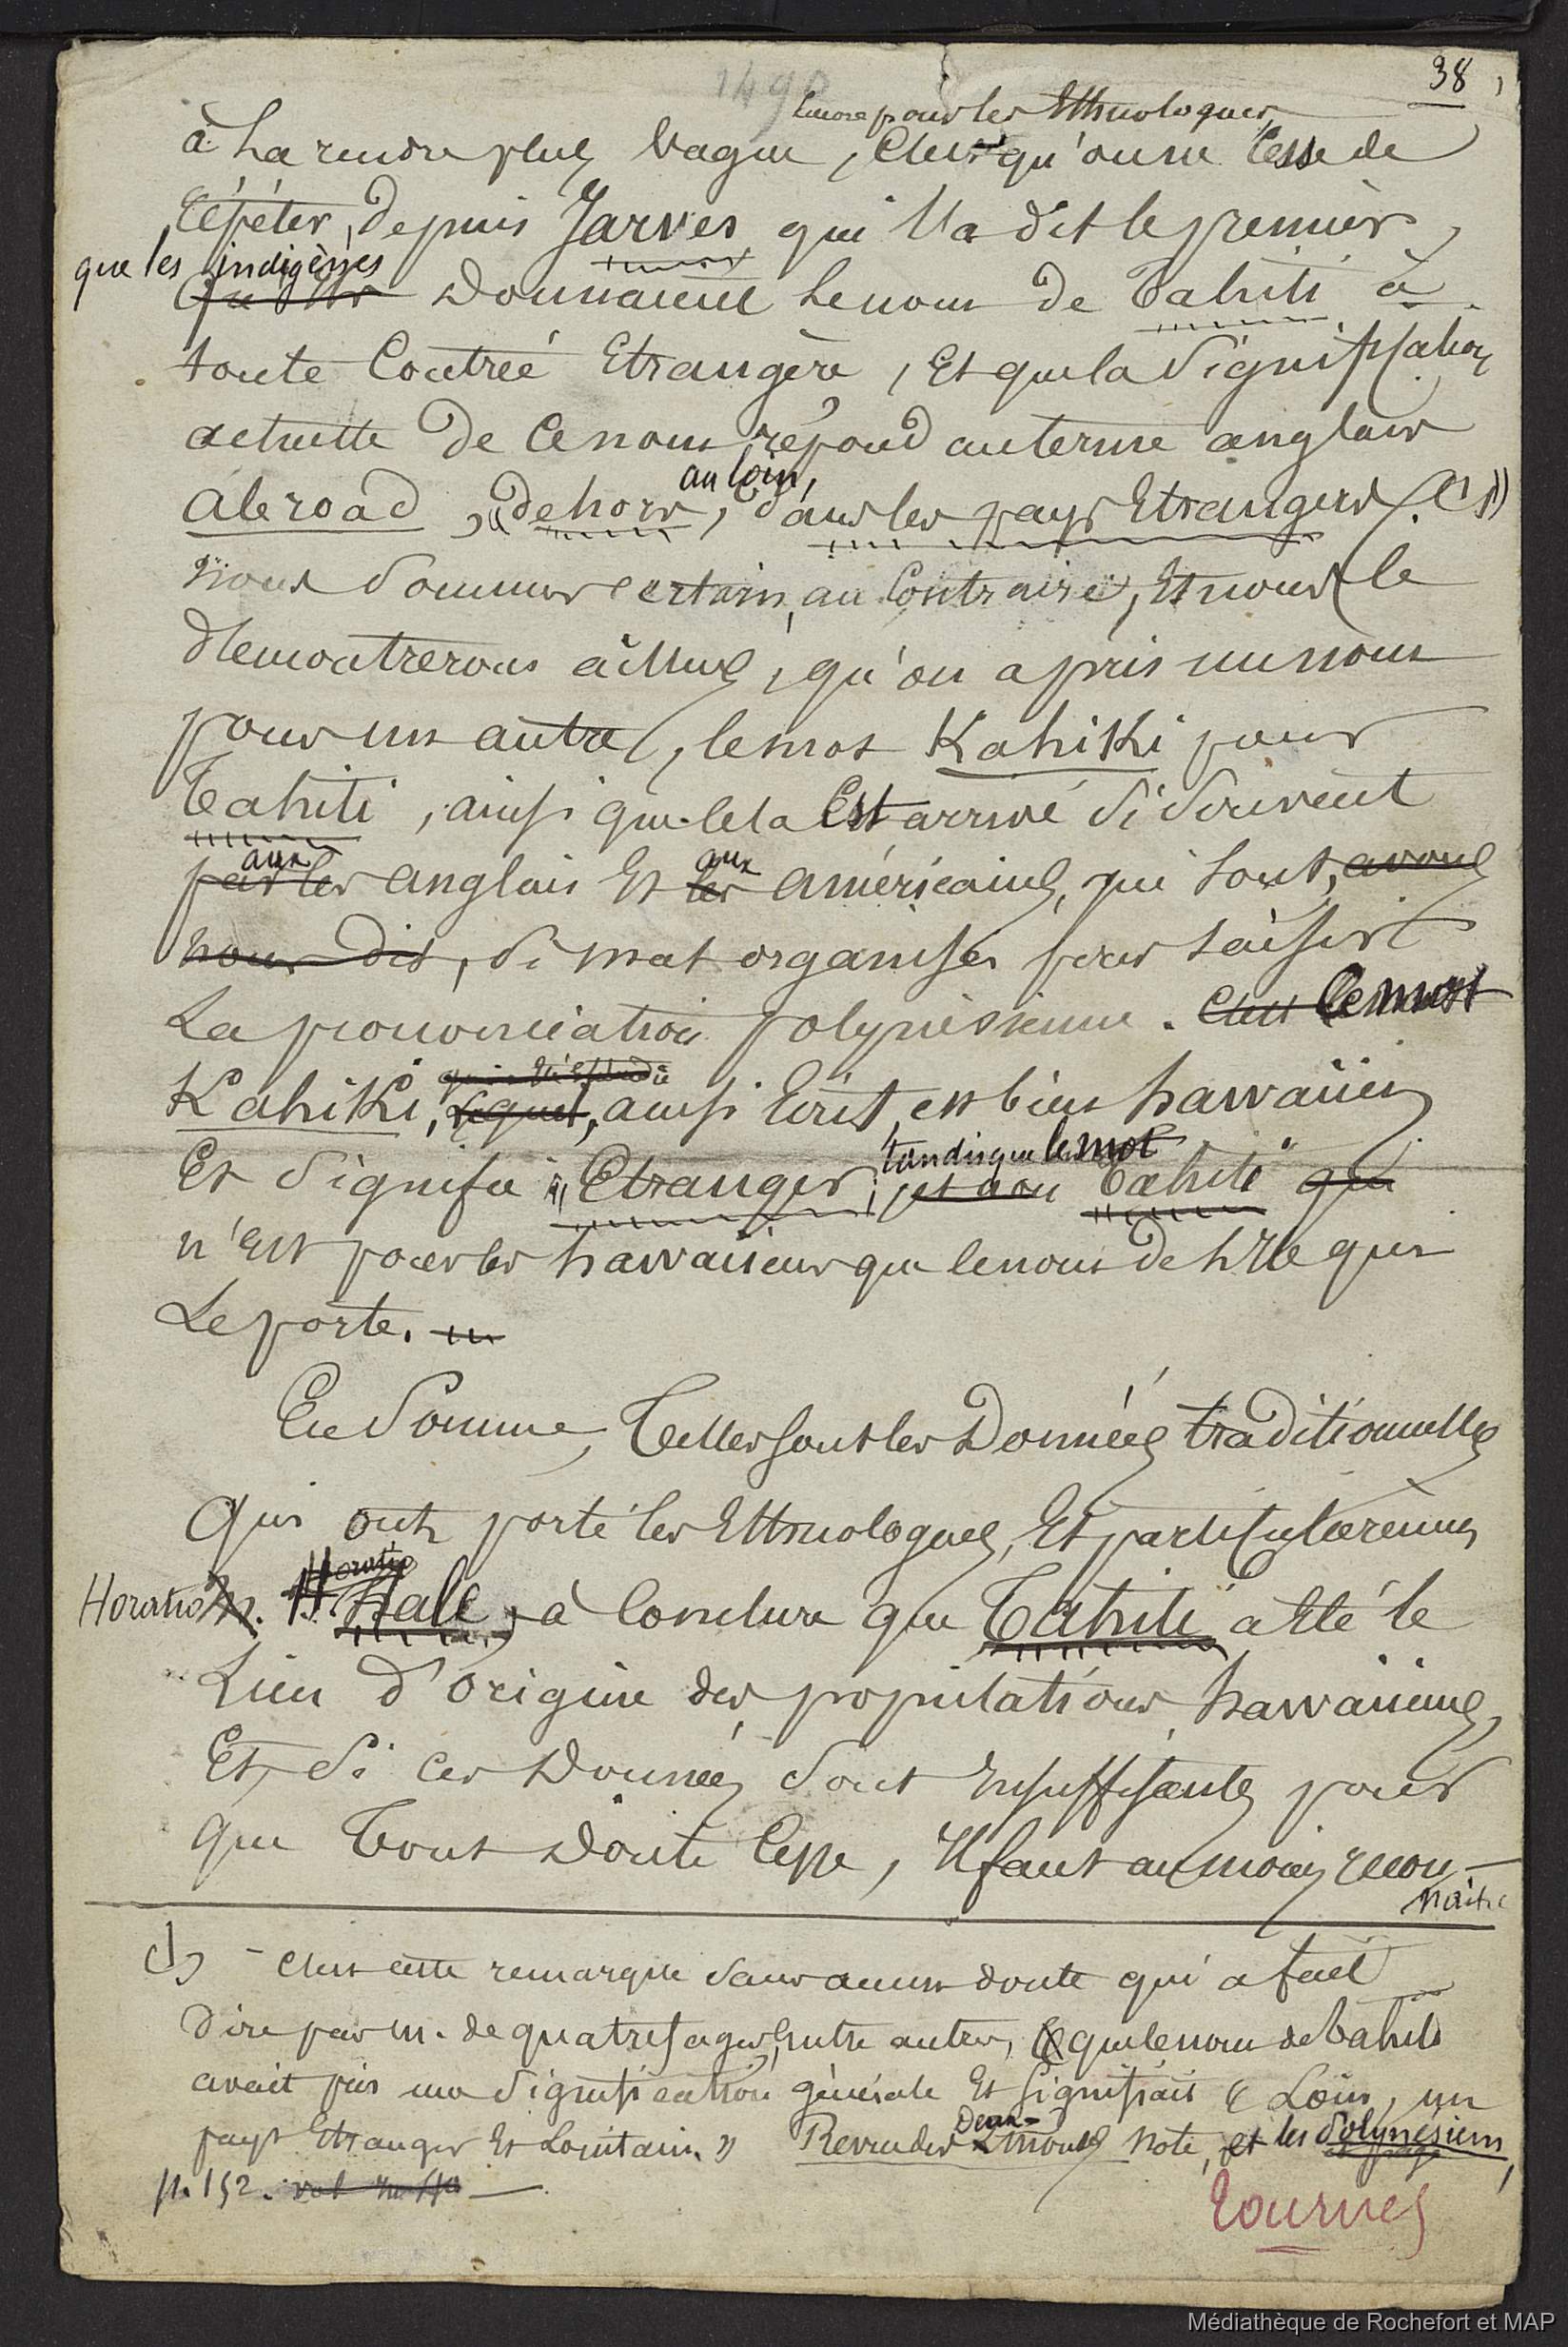 1490
38
encore pour les Ethnologues,
à la rendre plus vague, c'est qu'on ne cesse de
répéter, depuis Jarves qui l'a dit le premier,
que les indigènes
donnaient le nom de Tahiti à
toute contrée Etrangère, Et que la signification
actuelle de ce nom répond au terme anglais
au loin,
abroad, "dehors, dans les pays Etrangers". (1)
nous sommes certain, au contraire, Et nous le
démontrerons ailleurs, qu'on a pris un nom
pour un autre, le mot Kahiki pour
Tahiti, ainsi que cela Est arrivé si souvent
aux aux
par les anglais Et les américains, qui sont, avons
nous dit, si mal organisés pour saisir
La prononciation polynésienne. C'est le mot
Kahiki, lequel, ainsi Ecrit, est bien hawaiien
tandis que le mot
Et signifie "Etranger; et non Tahiti" qui
n'est pour les hawaiiens que le nom de l'Ile qui
Le porte.
En Somme, Telles sont les Données traditionnelles
Qui ont porté les Ethnologues, Et particulièrement
Horatio
Horatio M. H. Hale, à conclure que Tahiti a Eté le
Lieu d'origine des populations hawaiiennes,
Et, si ces Données sont insuffisantes pour
que Tout Doute cesse, Il faut au moins recon-
naître
(1) - C'est cette remarque sans aucun doute qui a fait
Dire par M. de quatrefages, Entre autres, que le nom de Tahiti
avait pris une signification générale Et signifiait "Loin, un
Deux-
pays Etranger Et Lointain." Revue des 2 mondes note, et les Polynésiens,
p. 152. 
tournez
Médiathèque de Rochefort et MAP